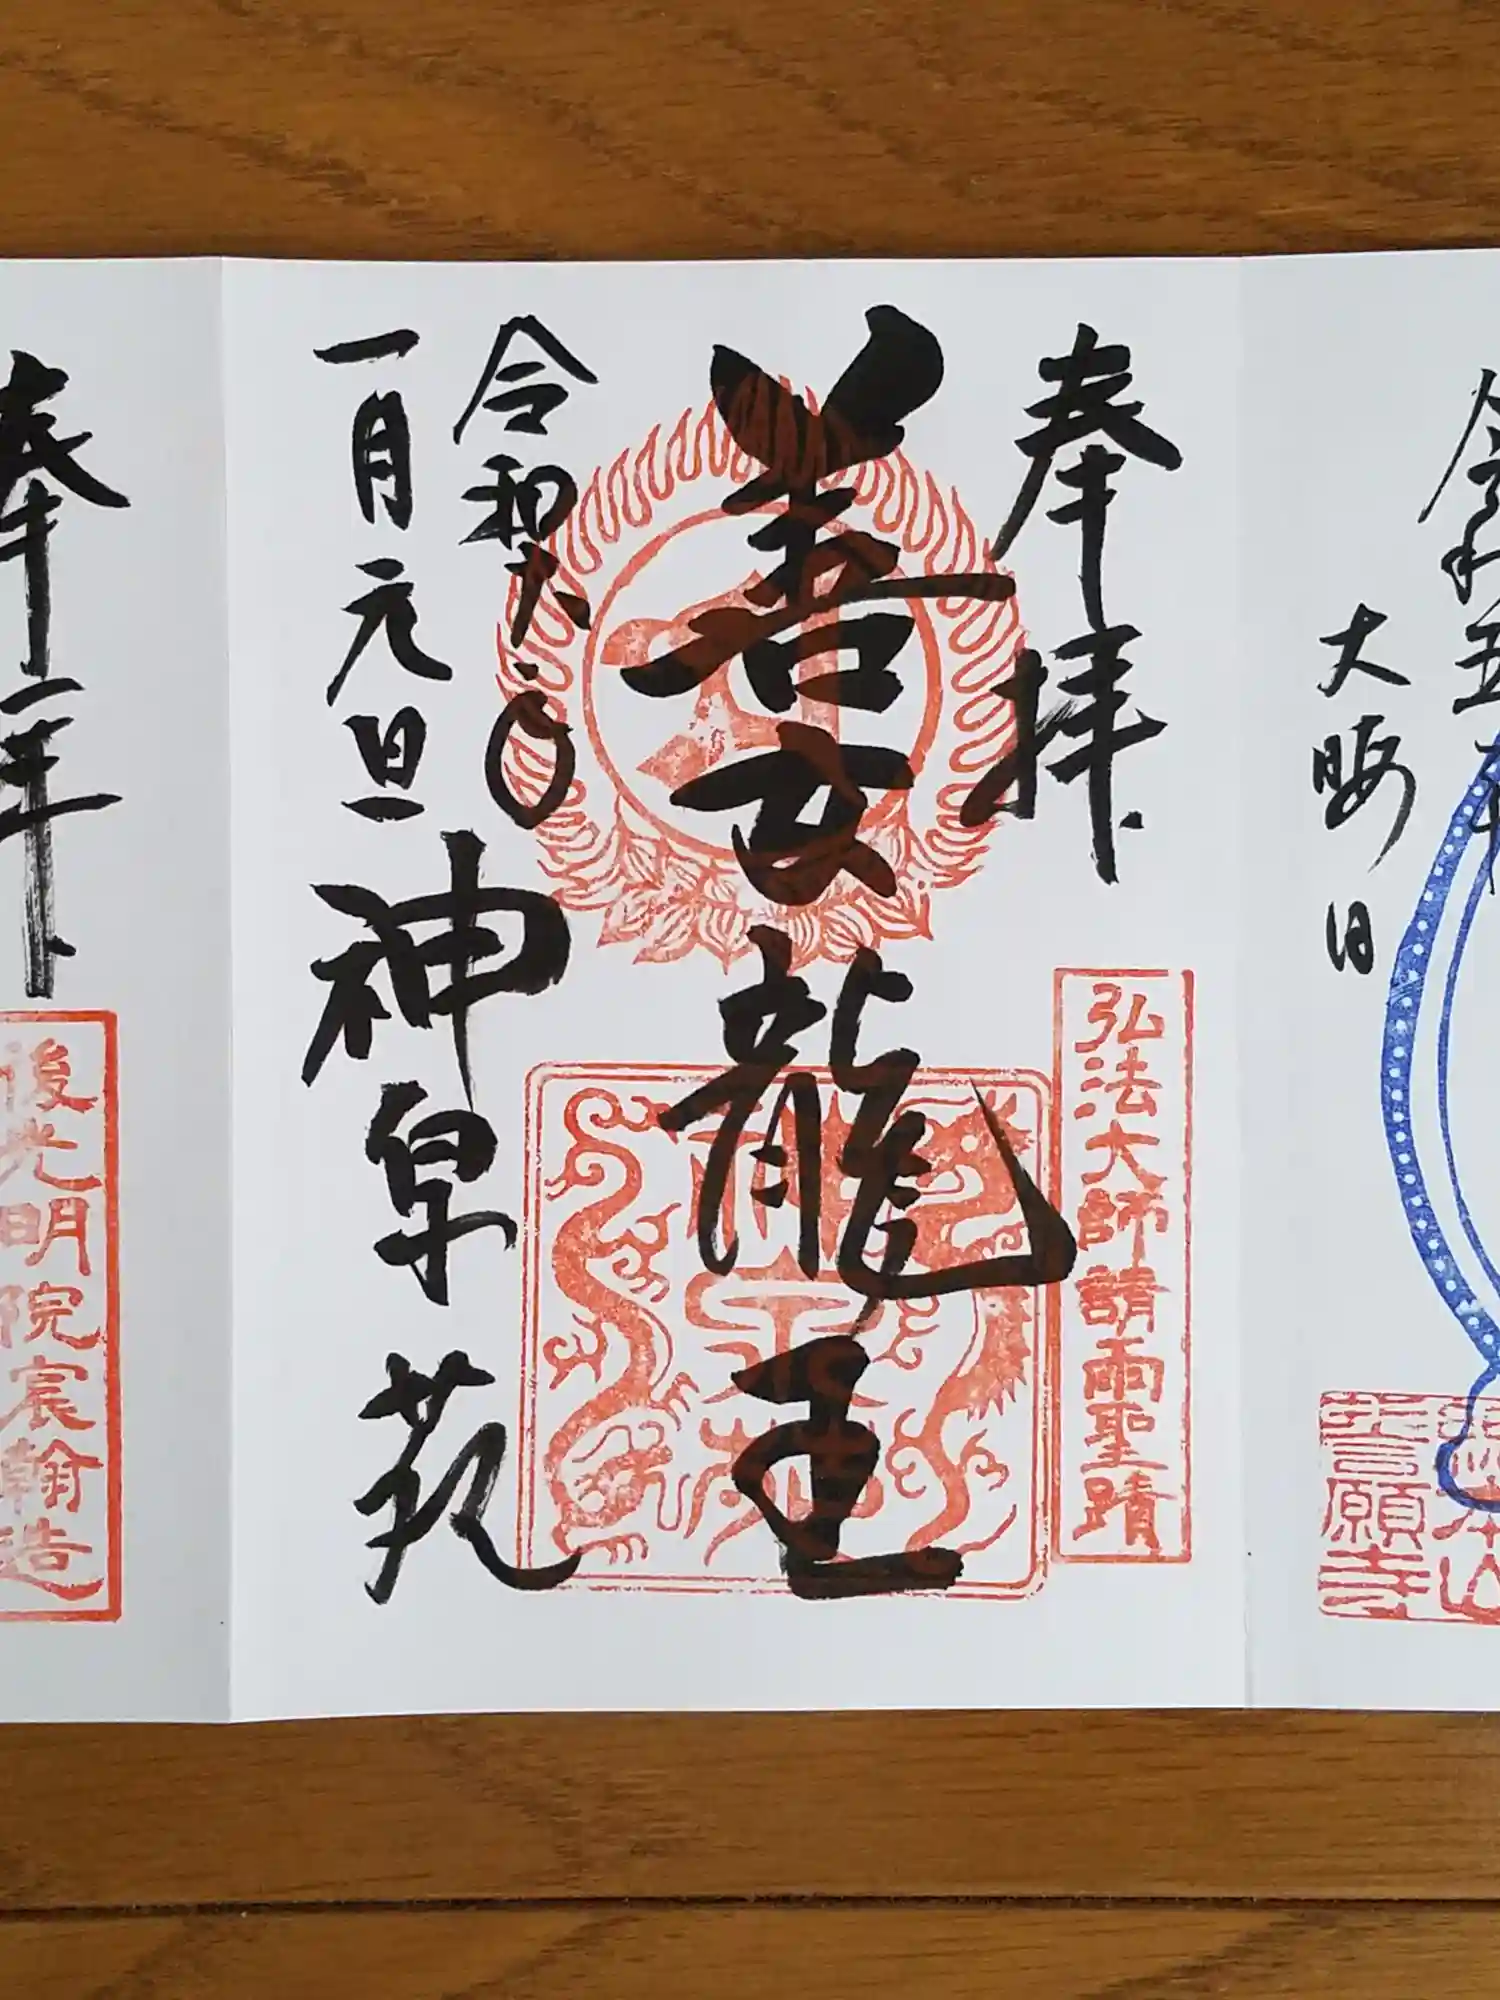 令和五年
大晦日
言願寺
奉拝
弘法大師請雨聖蹟
善女龍王
令和六年
一月元旦
神泉苑
奉拝
後光明院宸翰造